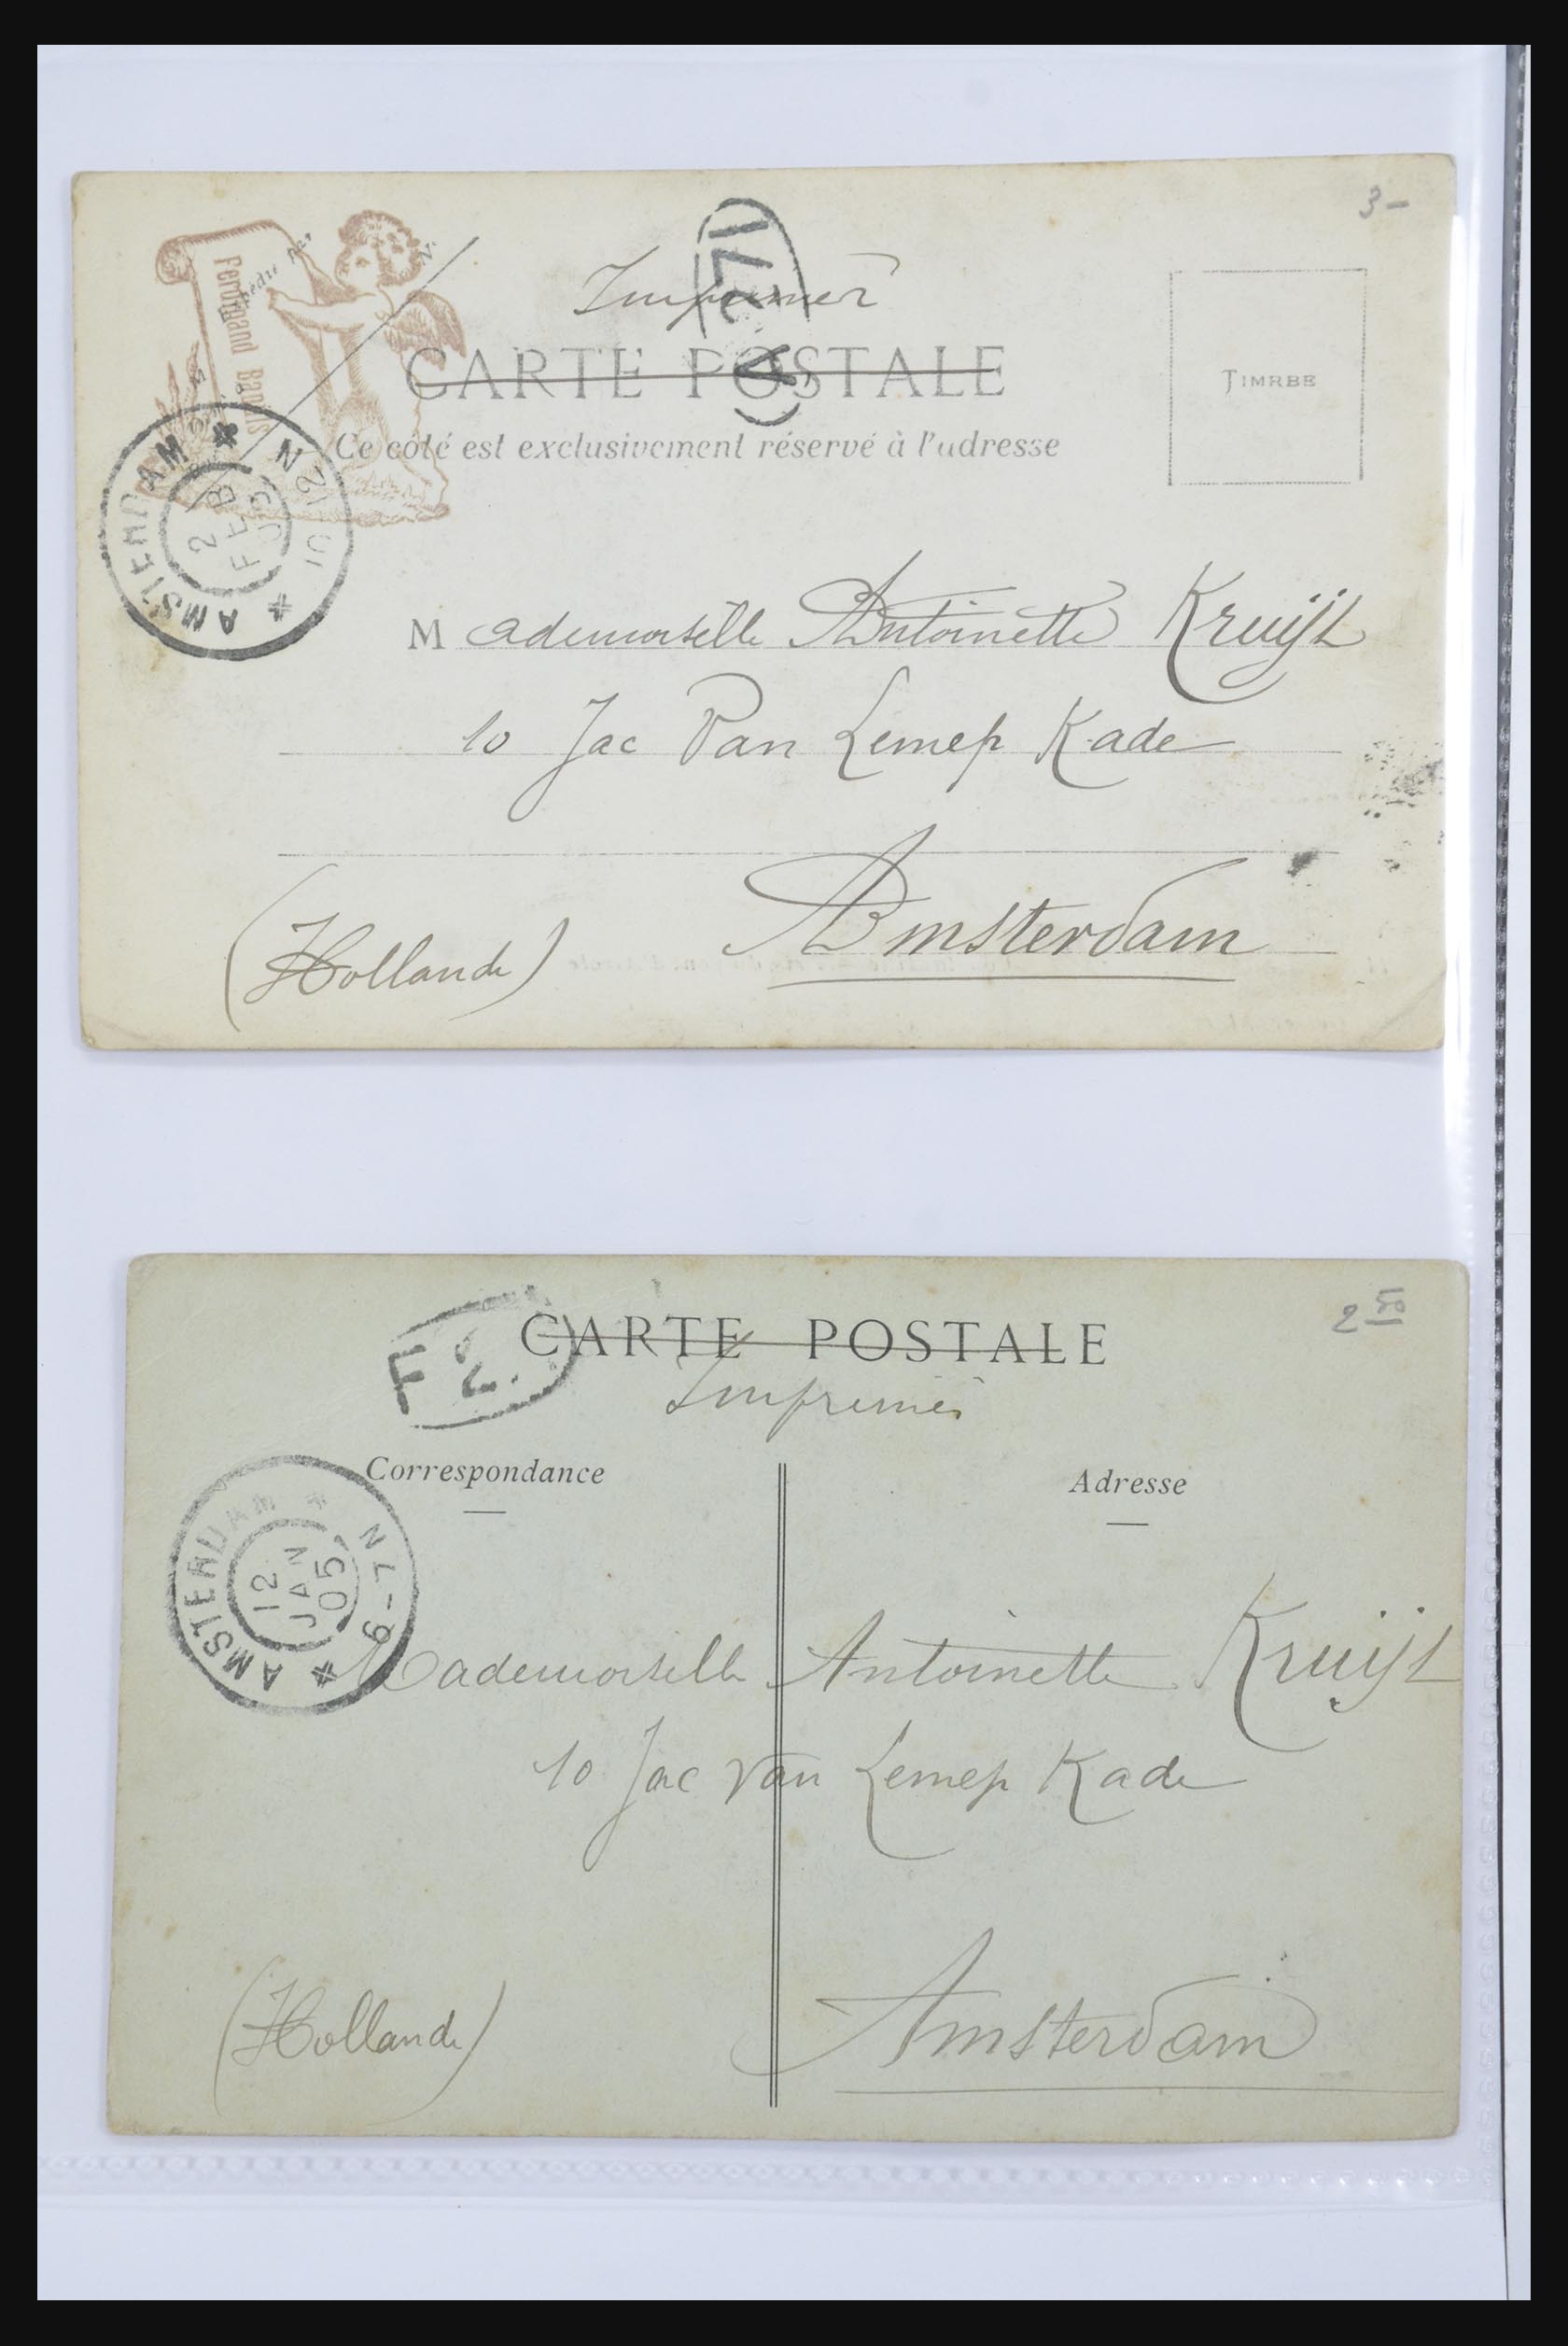 3-
Imprimés
CARTE POSTALE
TIMRBE
Ce côté est exclusivement réservé à l'adresse
Ferdinand
AMSTERDAM
2 FEB 05
10-12 N
Mademoiselle Antoinette Kruijt
10 Jac Van Lemep Kade
Amsterdam
(Hollande)
2 50
CARTE POSTALE
Imprimés
Correspondance
Adresse
AMSTERDAM
12 JAN 05
6-7 N
Mademoiselle Antoinette Kruijt
10 Jac Van Lemep Kade
Amsterdam
(Hollande)